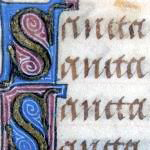 Sancta
Sancta
Sancta
Sancta